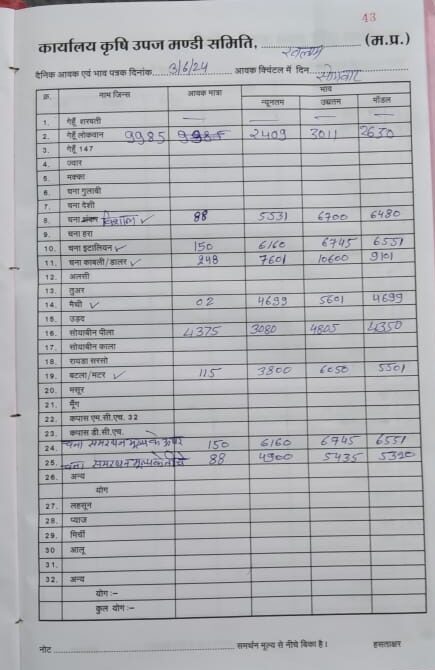 43
कार्यालय कृषि उपज मण्डी समिति, रतलाम (म.प्र.)
दैनिक आवक एवं भाव पत्रक दिनांक 3/6/24 आवक क्विंटल में दिन सोमवार
क्र. नाम जिन्स आवक मात्रा भाव
न्यूनतम उच्चतम मॉडल
1. गेहूँ शरबती — — — —
2. गेहूँ लोकवान 9985 9985 2409 3011 2650
3. गेहूँ 147
4. ज्वार
5. मक्का
6. चना गुलाबी
7. चना देशी
8. चना विशाल ✓ 88 5531 6700 6480
9. चना हरा
10. चना इटालियन ✓ 150 6160 6745 6551
11. चना काबली/डालर ✓ 248 7601 10600 9101
12. अलसी
13. तुअर
14. मैथी ✓ 02 4699 5601 4699
15. उड़द
16. सोयाबीन पीला 4375 3080 4805 4350
17. सोयाबीन काला
18. रायडा सरसो
19. बटला/मटर ✓ 115 3800 6050 5501
20. मसूर
21. मूँग
22. कपास एम.सी.एच. 32
23. कपास डी.सी.एच.
24. चना समरथन मूल्य के ऊपर 150 6160 6745 6551
25. चना समरथन मूल्य के नीचे 88 4900 5435 5320
26. अन्य
योग
27. लहसून
28. प्याज
29. मिर्ची
30 आलू
31.
32. अन्य
योग :–
कुल योग :–
नोट समर्थन मूल्य से नीचे बिका है। हस्ताक्षर